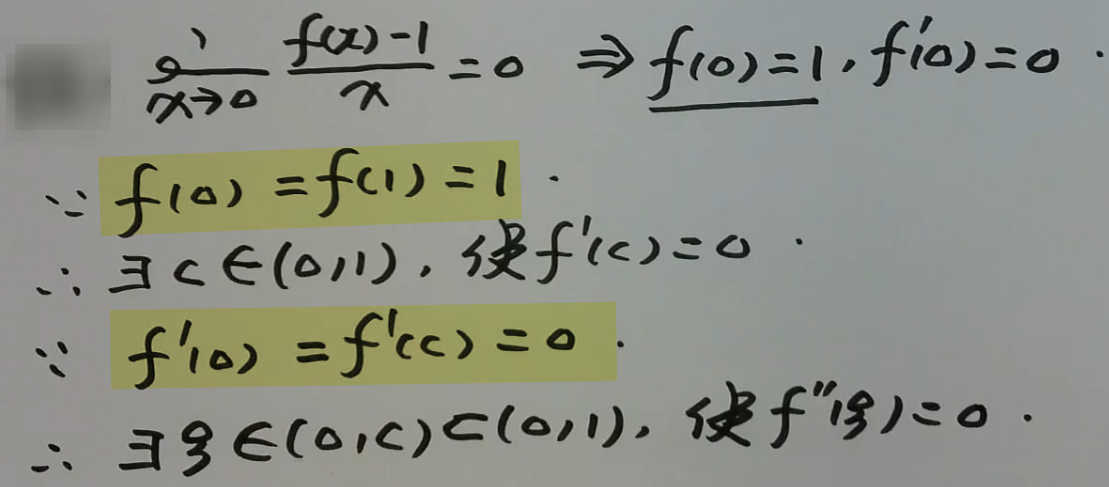 lim x→0 (f(x)-1)/x = 0 ⇒ f(0)=1, f'(0)=0.
∵ f(0)=f(1)=1.
∴ ∃c∈(0,1), 使f'(c)=0.
∵ f'(0)=f'(c)=0.
∴ ∃ξ∈(0,c)⊂(0,1), 使f''(ξ)=0.